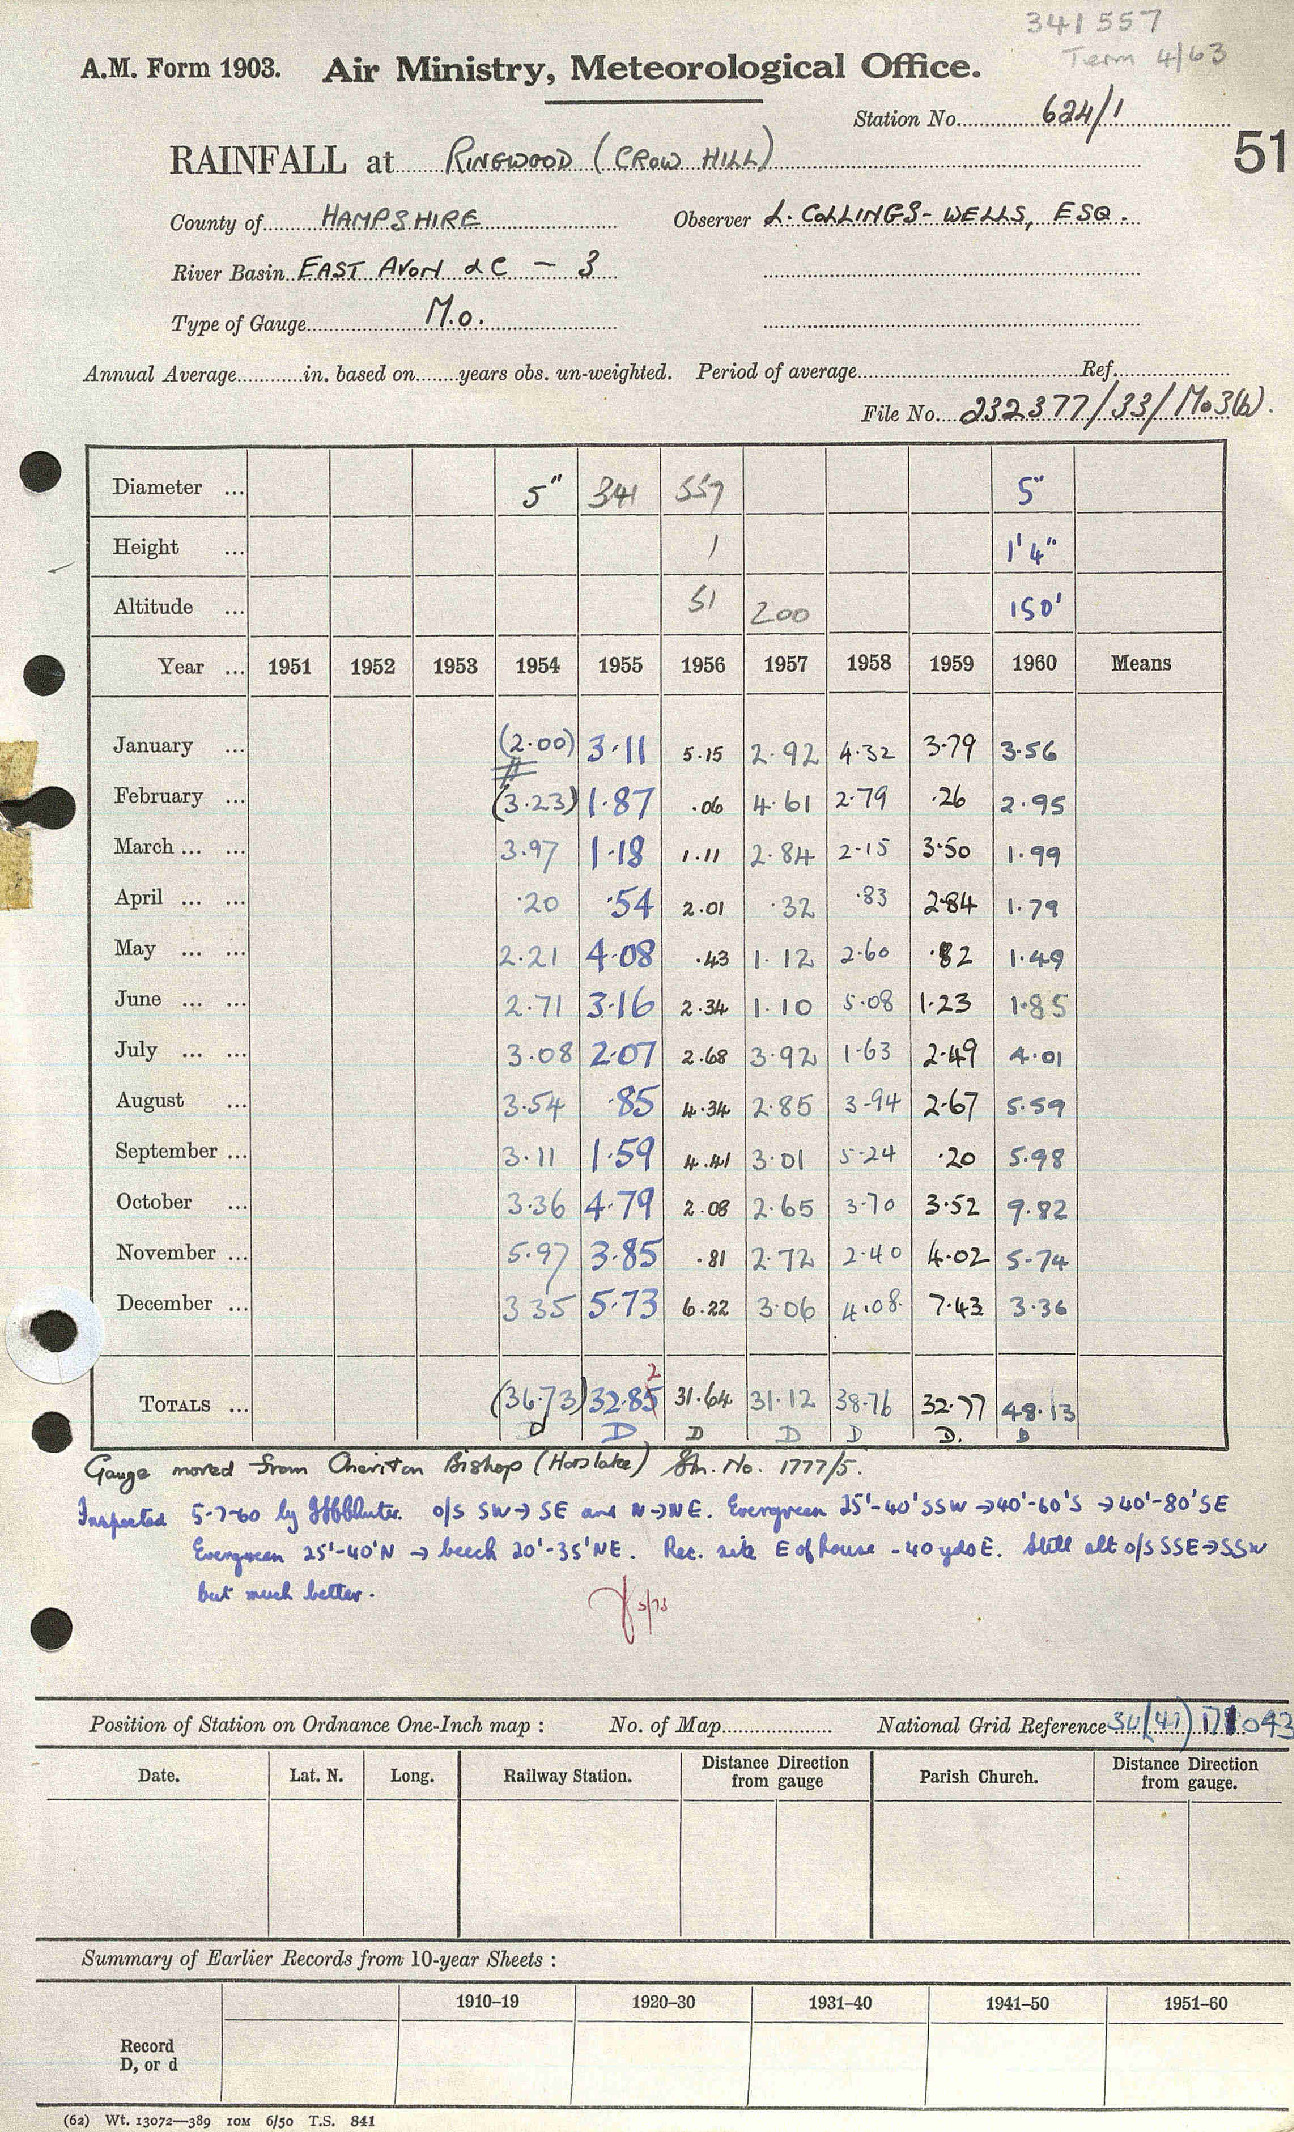 341557
Term 4/63
A.M. Form 1903. Air Ministry, Meteorological Office.
Station No. 624/1
51
RAINFALL at RINGWOOD (CROW HILL)
County of HAMPSHIRE Observer L. COLLINGS-WELLS, ESQ.
River Basin EAST AVON &C - 3
Type of Gauge M.O.
Annual Average in. based on years obs. un-weighted. Period of average Ref.
File No. 232377/33/Mo3(b).
Diameter ... 5" 341 557 5"
Height ... 1 1'4"
Altitude ... 51 200 150'
Year ... 1951 1952 1953 1954 1955 1956 1957 1958 1959 1960 Means
January ... (2.00) 3.11 5.15 2.92 4.32 3.79 3.56
February ... (3.23) 1.87 .06 4.61 2.79 .26 2.95
March ... ... 3.97 1.18 1.11 2.84 2.15 3.50 1.99
April ... ... .20 .54 2.01 .32 .83 2.84 1.79
May ... ... 2.21 4.08 .43 1.12 2.60 .82 1.49
June ... ... 2.71 3.16 2.34 1.10 5.08 1.23 1.85
July ... ... 3.08 2.07 2.68 3.92 1.63 2.49 4.01
August ... 3.54 .85 4.34 2.85 3.94 2.67 5.59
September ... 3.11 1.59 4.41 3.01 5.24 .20 5.98
October ... 3.36 4.79 2.08 2.65 3.70 3.52 9.82
November ... 5.97 3.85 .81 2.72 2.40 4.02 5.74
December ... 3 35 5.73 6.22 3.06 4.08 7.43 3.36
2
TOTALS ... (36.73) 32.85 31.64 31.12 38.76 32.77 48.13
D D D D D D. D
Gauge moved from Cheriton Bishop (Horslake) Stn. No. 1777/5.
Inspected 5-7-60 by o/s SW→SE and N→NE. Evergreen 25'-40'SSW →40'-60'S →40'-80'SE
Evergreen 25'-40'N → beech 20'-35'NE. Rec. site E of house -40 yds E. Still alt o/s SSE→SSW
but much better.
Position of Station on Ordnance One-Inch map : No. of Map National Grid Reference 043
Date. Lat. N. Long. Railway Station. Distance Direction from gauge Parish Church. Distance Direction from gauge.
Summary of Earlier Records from 10-year Sheets :
1910–19 1920–30 1931–40 1941–50 1951–60
Record
D, or d
(62) Wt. 13072—389 10M 6/50 T.S. 841